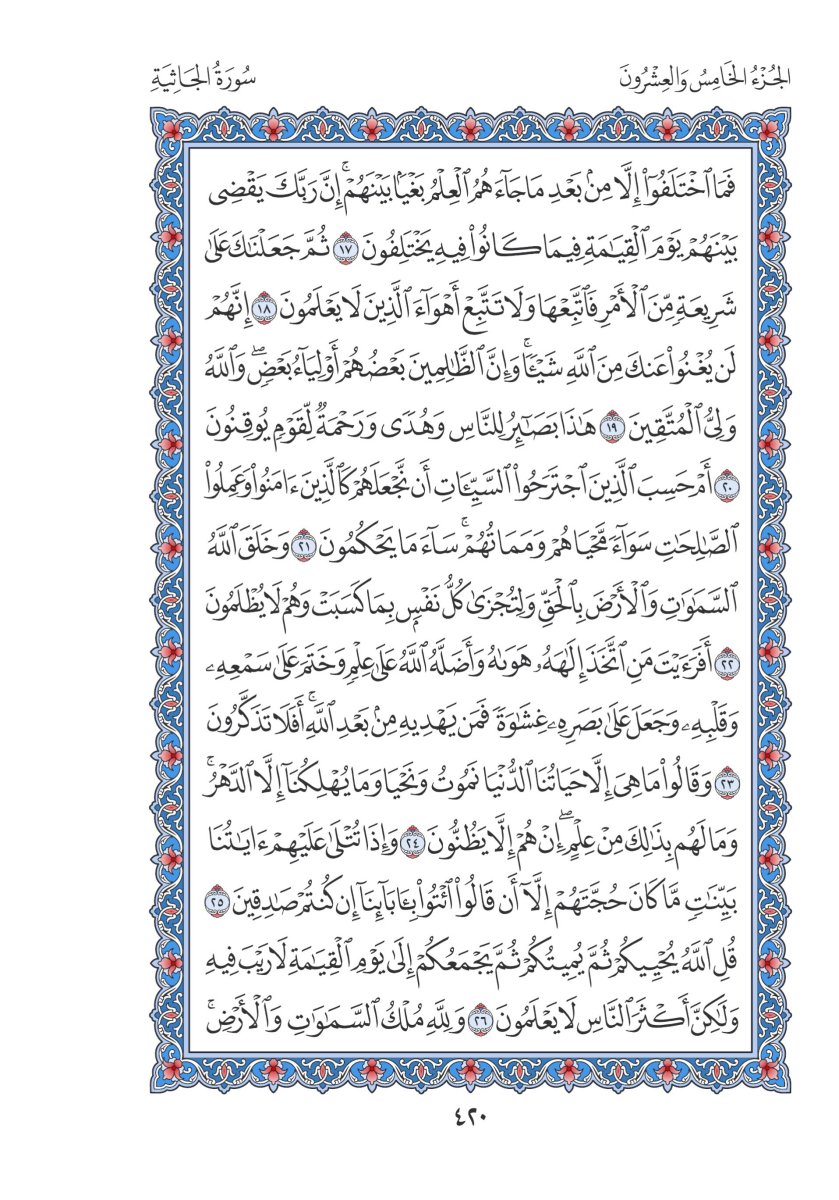 الجُزْءُ الخَامِسُ وَالعِشْرُونَ
سُورَةُ الجَاثِيَةِ
فَمَا ٱخْتَلَفُوٓا۟ إِلَّا مِنۢ بَعْدِ مَا جَآءَهُمُ ٱلْعِلْمُ بَغْيًۢا بَيْنَهُمْ ۚ إِنَّ رَبَّكَ يَقْضِى
بَيْنَهُمْ يَوْمَ ٱلْقِيَـٰمَةِ فِيمَا كَانُوا۟ فِيهِ يَخْتَلِفُونَ ١٧ ثُمَّ جَعَلْنَـٰكَ عَلَىٰ
شَرِيعَةٍ مِّنَ ٱلْأَمْرِ فَٱتَّبِعْهَا وَلَا تَتَّبِعْ أَهْوَآءَ ٱلَّذِينَ لَا يَعْلَمُونَ ١٨ إِنَّهُمْ
لَن يُغْنُوا۟ عَنكَ مِنَ ٱللَّهِ شَيْـًٔا ۚ وَإِنَّ ٱلظَّـٰلِمِينَ بَعْضُهُمْ أَوْلِيَآءُ بَعْضٍ ۖ وَٱللَّهُ
وَلِىُّ ٱلْمُتَّقِينَ ١٩ هَـٰذَا بَصَـٰٓئِرُ لِلنَّاسِ وَهُدًى وَرَحْمَةٌ لِّقَوْمٍ يُوقِنُونَ
٢٠ أَمْ حَسِبَ ٱلَّذِينَ ٱجْتَرَحُوا۟ ٱلسَّيِّـَٔاتِ أَن نَّجْعَلَهُمْ كَٱلَّذِينَ ءَامَنُوا۟ وَعَمِلُوا۟
ٱلصَّـٰلِحَـٰتِ سَوَآءً مَّحْيَاهُمْ وَمَمَاتُهُمْ ۚ سَآءَ مَا يَحْكُمُونَ ٢١ وَخَلَقَ ٱللَّهُ
ٱلسَّمَـٰوَٰتِ وَٱلْأَرْضَ بِٱلْحَقِّ وَلِتُجْزَىٰ كُلُّ نَفْسٍۭ بِمَا كَسَبَتْ وَهُمْ لَا يُظْلَمُونَ
٢٢ أَفَرَءَيْتَ مَنِ ٱتَّخَذَ إِلَـٰهَهُۥ هَوَىٰهُ وَأَضَلَّهُ ٱللَّهُ عَلَىٰ عِلْمٍ وَخَتَمَ عَلَىٰ سَمْعِهِۦ
وَقَلْبِهِۦ وَجَعَلَ عَلَىٰ بَصَرِهِۦ غِشَـٰوَةً فَمَن يَهْدِيهِ مِنۢ بَعْدِ ٱللَّهِ ۚ أَفَلَا تَذَكَّرُونَ
٢٣ وَقَالُوا۟ مَا هِىَ إِلَّا حَيَاتُنَا ٱلدُّنْيَا نَمُوتُ وَنَحْيَا وَمَا يُهْلِكُنَآ إِلَّا ٱلدَّهْرُ ۚ
وَمَا لَهُم بِذَٰلِكَ مِنْ عِلْمٍ ۖ إِنْ هُمْ إِلَّا يَظُنُّونَ ٢٤ وَإِذَا تُتْلَىٰ عَلَيْهِمْ ءَايَـٰتُنَا
بَيِّنَـٰتٍ مَّا كَانَ حُجَّتَهُمْ إِلَّآ أَن قَالُوا۟ ٱئْتُوا۟ بِـَٔابَآئِنَآ إِن كُنتُمْ صَـٰدِقِينَ ٢٥
قُلِ ٱللَّهُ يُحْيِيكُمْ ثُمَّ يُمِيتُكُمْ ثُمَّ يَجْمَعُكُمْ إِلَىٰ يَوْمِ ٱلْقِيَـٰمَةِ لَا رَيْبَ فِيهِ
وَلَـٰكِنَّ أَكْثَرَ ٱلنَّاسِ لَا يَعْلَمُونَ ٢٦ وَلِلَّهِ مُلْكُ ٱلسَّمَـٰوَٰتِ وَٱلْأَرْضِ ۚ
٤٢٠